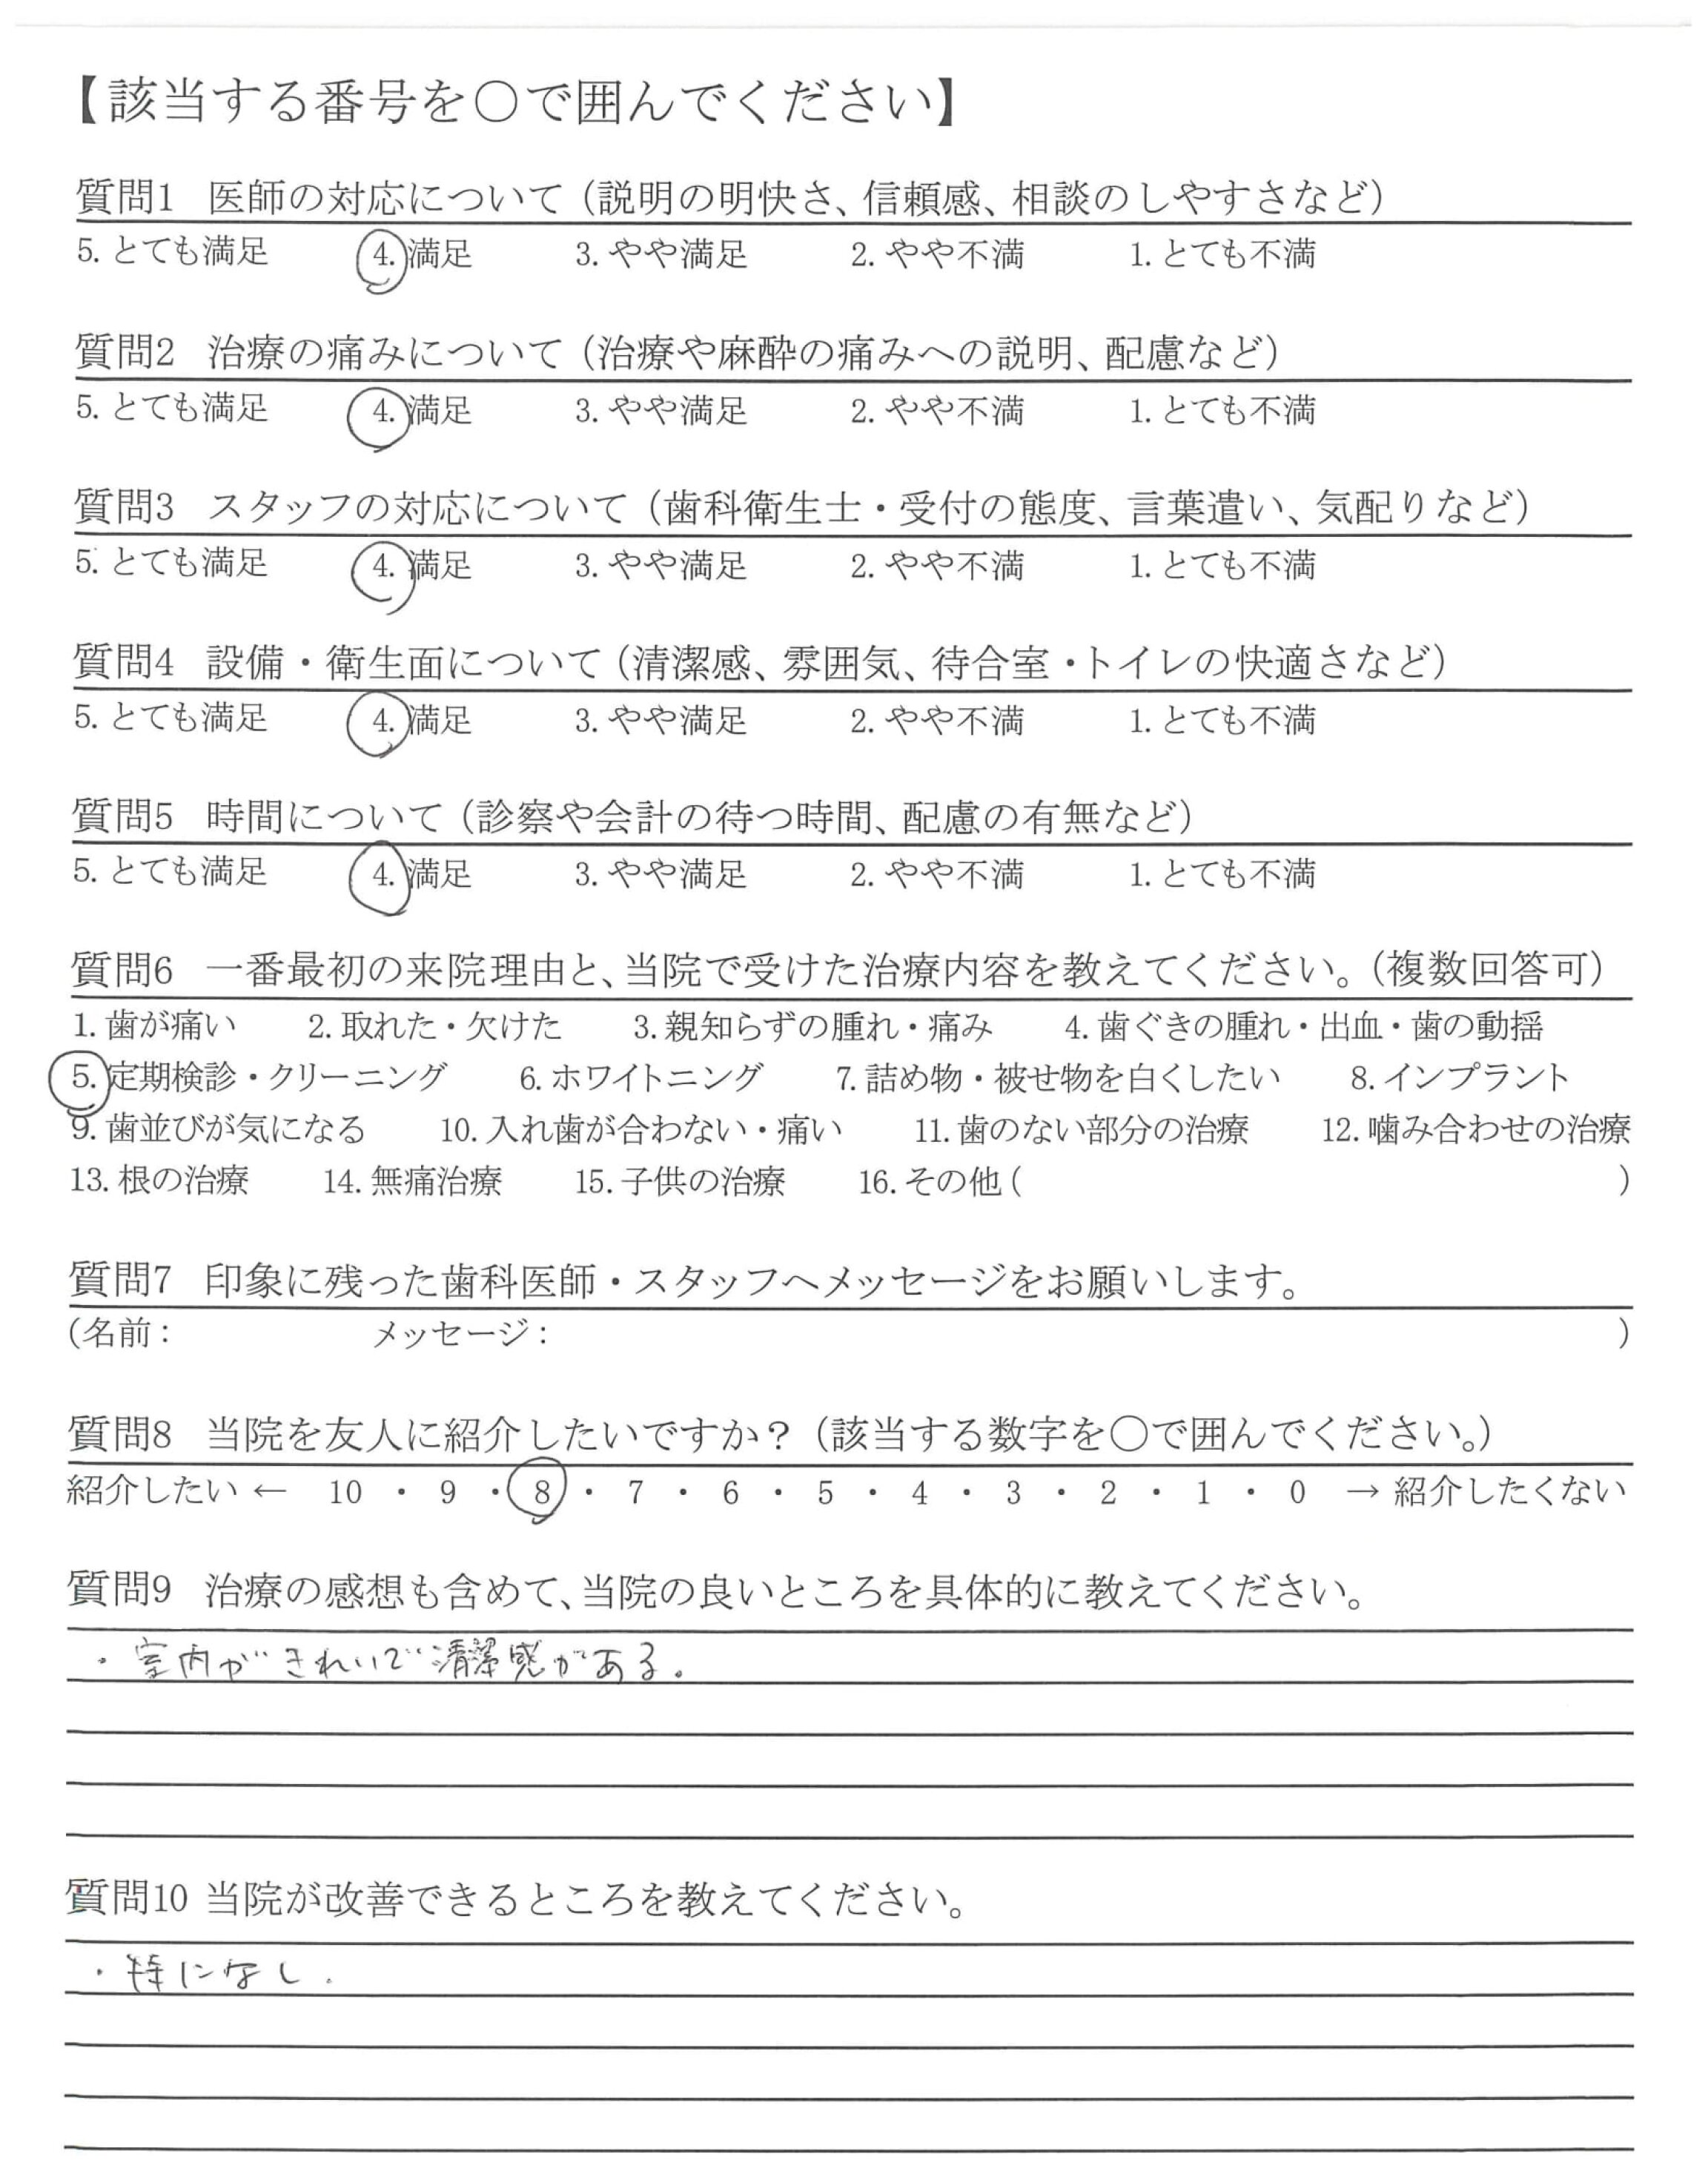 【該当する番号を○で囲んでください】
質問1 医師の対応について（説明の明快さ、信頼感、相談のしやすさなど）
5. とても満足 4. 満足 3. やや満足 2. やや不満 1. とても不満
質問2 治療の痛みについて（治療や麻酔の痛みへの説明、配慮など）
5. とても満足 4. 満足 3. やや満足 2. やや不満 1. とても不満
質問3 スタッフの対応について（歯科衛生士・受付の態度、言葉遣い、気配りなど）
5. とても満足 4. 満足 3. やや満足 2. やや不満 1. とても不満
質問4 設備・衛生面について（清潔感、雰囲気、待合室・トイレの快適さなど）
5. とても満足 4. 満足 3. やや満足 2. やや不満 1. とても不満
質問5 時間について（診察や会計の待つ時間、配慮の有無など）
5. とても満足 4. 満足 3. やや満足 2. やや不満 1. とても不満
質問6 一番最初の来院理由と、当院で受けた治療内容を教えてください。（複数回答可）
1. 歯が痛い 2. 取れた・欠けた 3. 親知らずの腫れ・痛み 4. 歯ぐきの腫れ・出血・歯の動揺
5. 定期検診・クリーニング 6. ホワイトニング 7. 詰め物・被せ物を白くしたい 8. インプラント
9. 歯並びが気になる 10. 入れ歯が合わない・痛い 11. 歯のない部分の治療 12. 噛み合わせの治療
13. 根の治療 14. 無痛治療 15. 子供の治療 16. その他（ ）
質問7 印象に残った歯科医師・スタッフへメッセージをお願いします。
（名前： メッセージ： ）
質問8 当院を友人に紹介したいですか？（該当する数字を○で囲んでください。）
紹介したい ← 10 ・ 9 ・ 8 ・ 7 ・ 6 ・ 5 ・ 4 ・ 3 ・ 2 ・ 1 ・ 0 → 紹介したくない
質問9 治療の感想も含めて、当院の良いところを具体的に教えてください。
・室内がきれいで清潔感がある。
質問10 当院が改善できるところを教えてください。
・特になし.